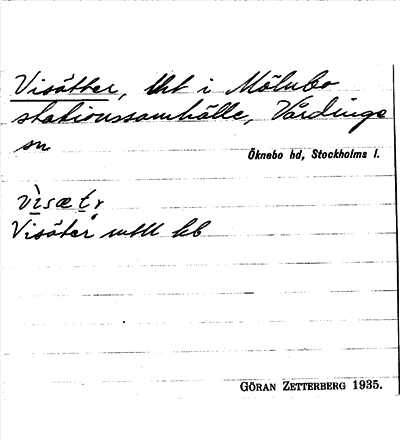 Visätter, lht i Mölnbo
stationssamhälle, Vårdinge
sn
Öknebo hd, Stockholms l.
vìsætr
Visäter uttl kb
GÖRAN ZETTERBERG 1935.